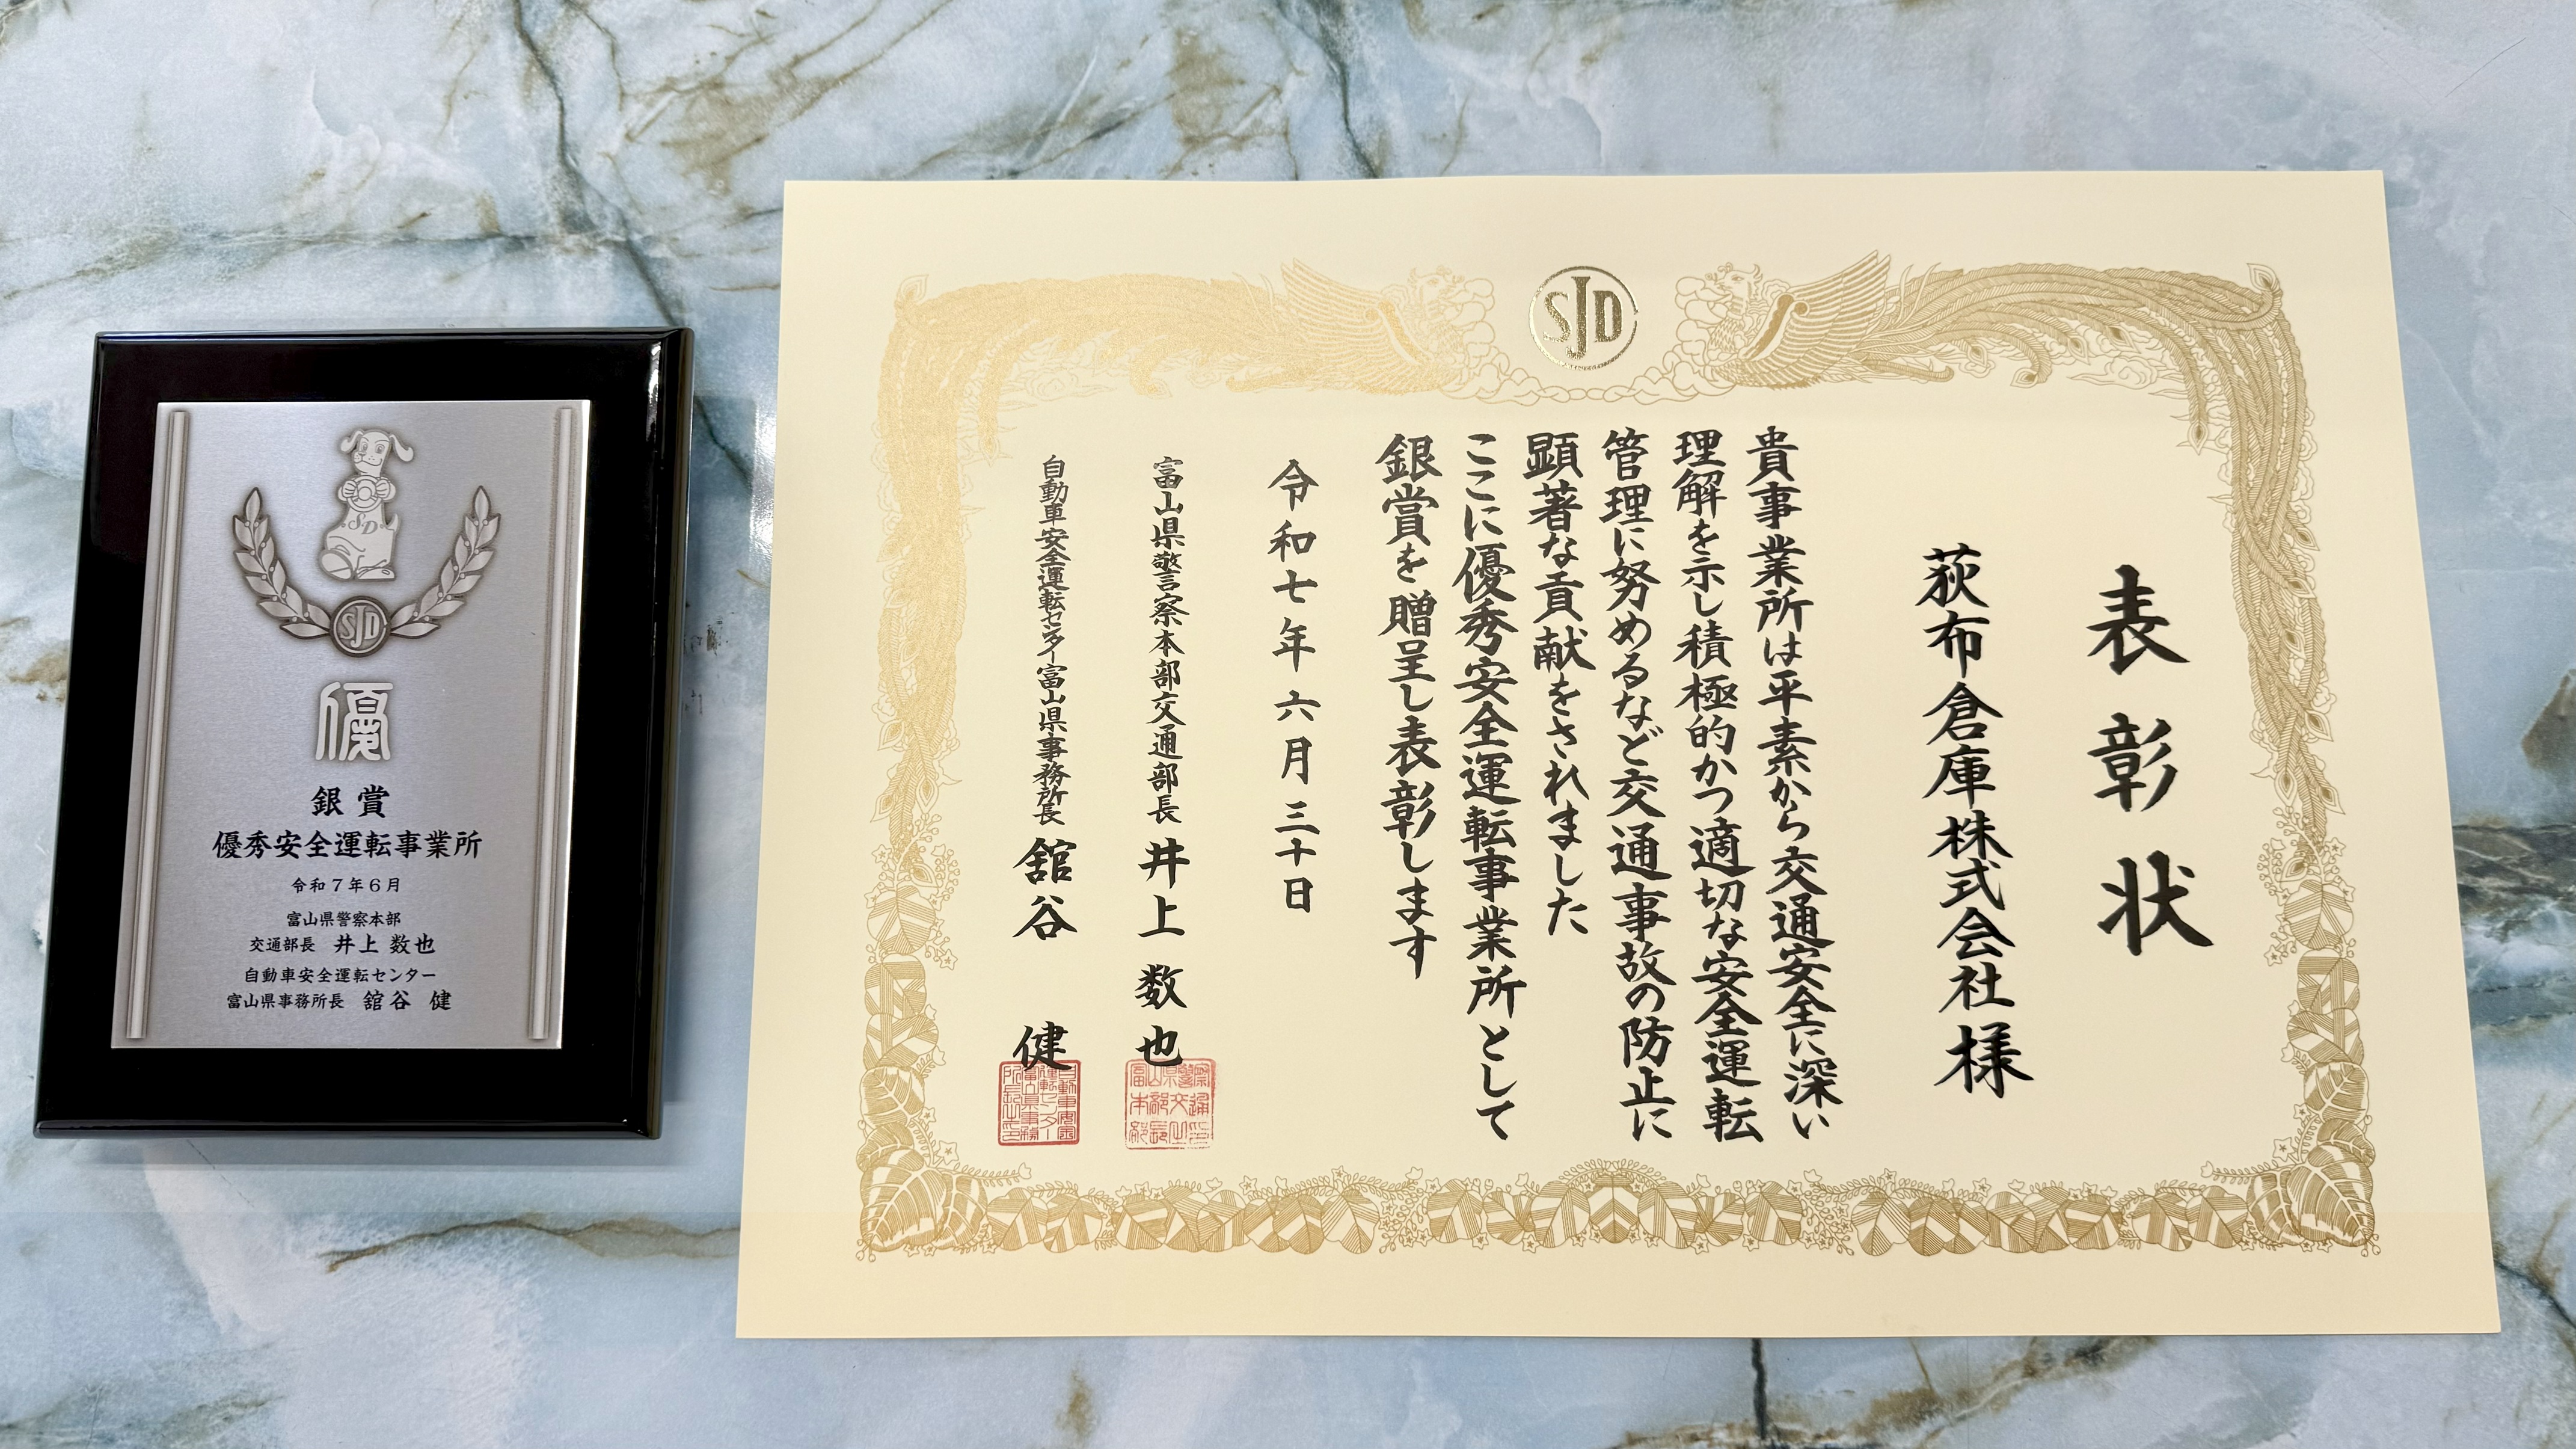 SJD
表彰状
荻布倉庫株式会社様
貴事業所は平素から交通安全に深い
理解を示し積極的かつ適切な安全運転
管理に努めるなど交通事故の防止に
顕著な貢献をされました
ここに優秀安全運転事業所として
銀賞を贈呈し表彰します
令和七年六月三十日
富山県警察本部交通部長 井上数也
自動車安全運転センター富山県事務所長 舘谷 健
SD
SJD
優
銀賞
優秀安全運転事業所
令和7年6月
富山県警察本部
交通部長 井上 数也
自動車安全運転センター
富山県事務所長 舘谷 健